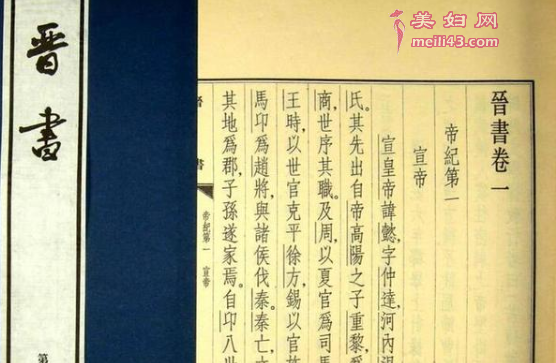 美妇网
meili43.com
晋書
第
晉書卷一
帝紀第一
宣帝
宣皇帝諱懿,字仲達,河內
氏。其先出自帝高陽之子重黎,
商,世序其職。及周,以夏官爲司馬
王時,以世官克平徐方,錫以官族
馬卬爲趙將,與諸侯伐秦。秦亡,
其地爲郡,子孫遂家焉。自卬八世
書
帝紀第一 宣帝